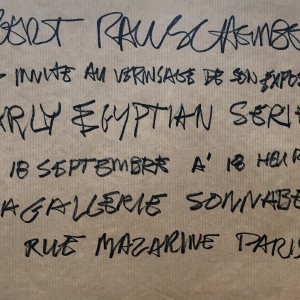 BERT RAUSCHENBE
INVITE AU VERINSAGE DE SON EXPO
ARLY EGYPTIAN SERI
18 SEPTEMBRE A' 18 HEUR
A GALLERIE SONNABE
RUE MAZARINE PARIS